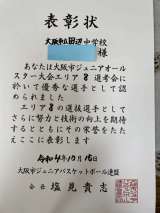 表彰状
大阪市立田辺中学校
様
あなたは大阪市ジュニアオール
スター大会エリア8選考会に
於いて優秀な選手として認
められました
エリア8の選抜選手として
さらに努力と技術の向上を期待
するとともにその栄誉をたたえ
ここに表彰します
令和4年10月16日
大阪市ジュニアバスケットボール連盟
会長 塩見貴志